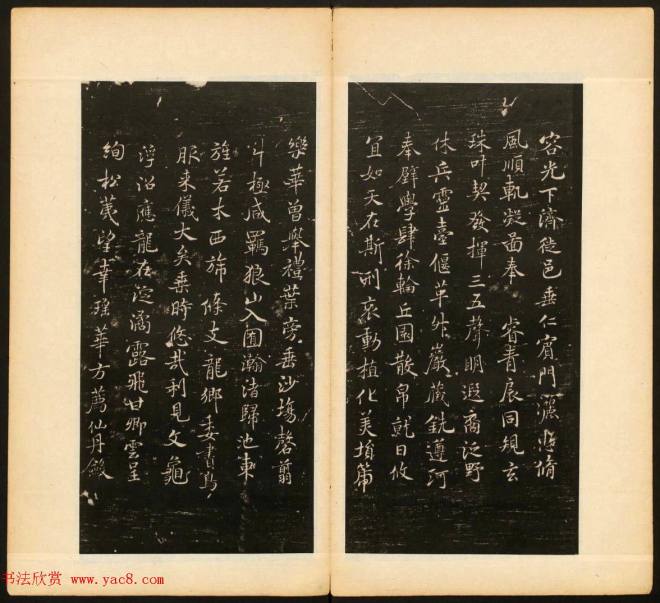 容光下濟從邑垂仁賓門灑澤脩
風順軌凝圖奉 睿青扆同規玄
珠叶契發揮三五聲明遐商泛野
休兵靈臺偃革外嚴藏銑遵河
奉璧學肆徐輪丘園散帛就日攸
宜如天在斯刑哀動植化美塤篪
樂華曾舉禮葉旁垂沙場罄翦
斗極咸羈狼山入囿瀚渚歸池東
旌若木西旆條支龍鄉委書鳥
服来儀大矣乘時悠哉利見文龜
浮沼應龍在淀湛露飛甘卿雲呈
絢松茂望幸瑤華方薦仙丹斂
书法欣赏 www.yac8.com